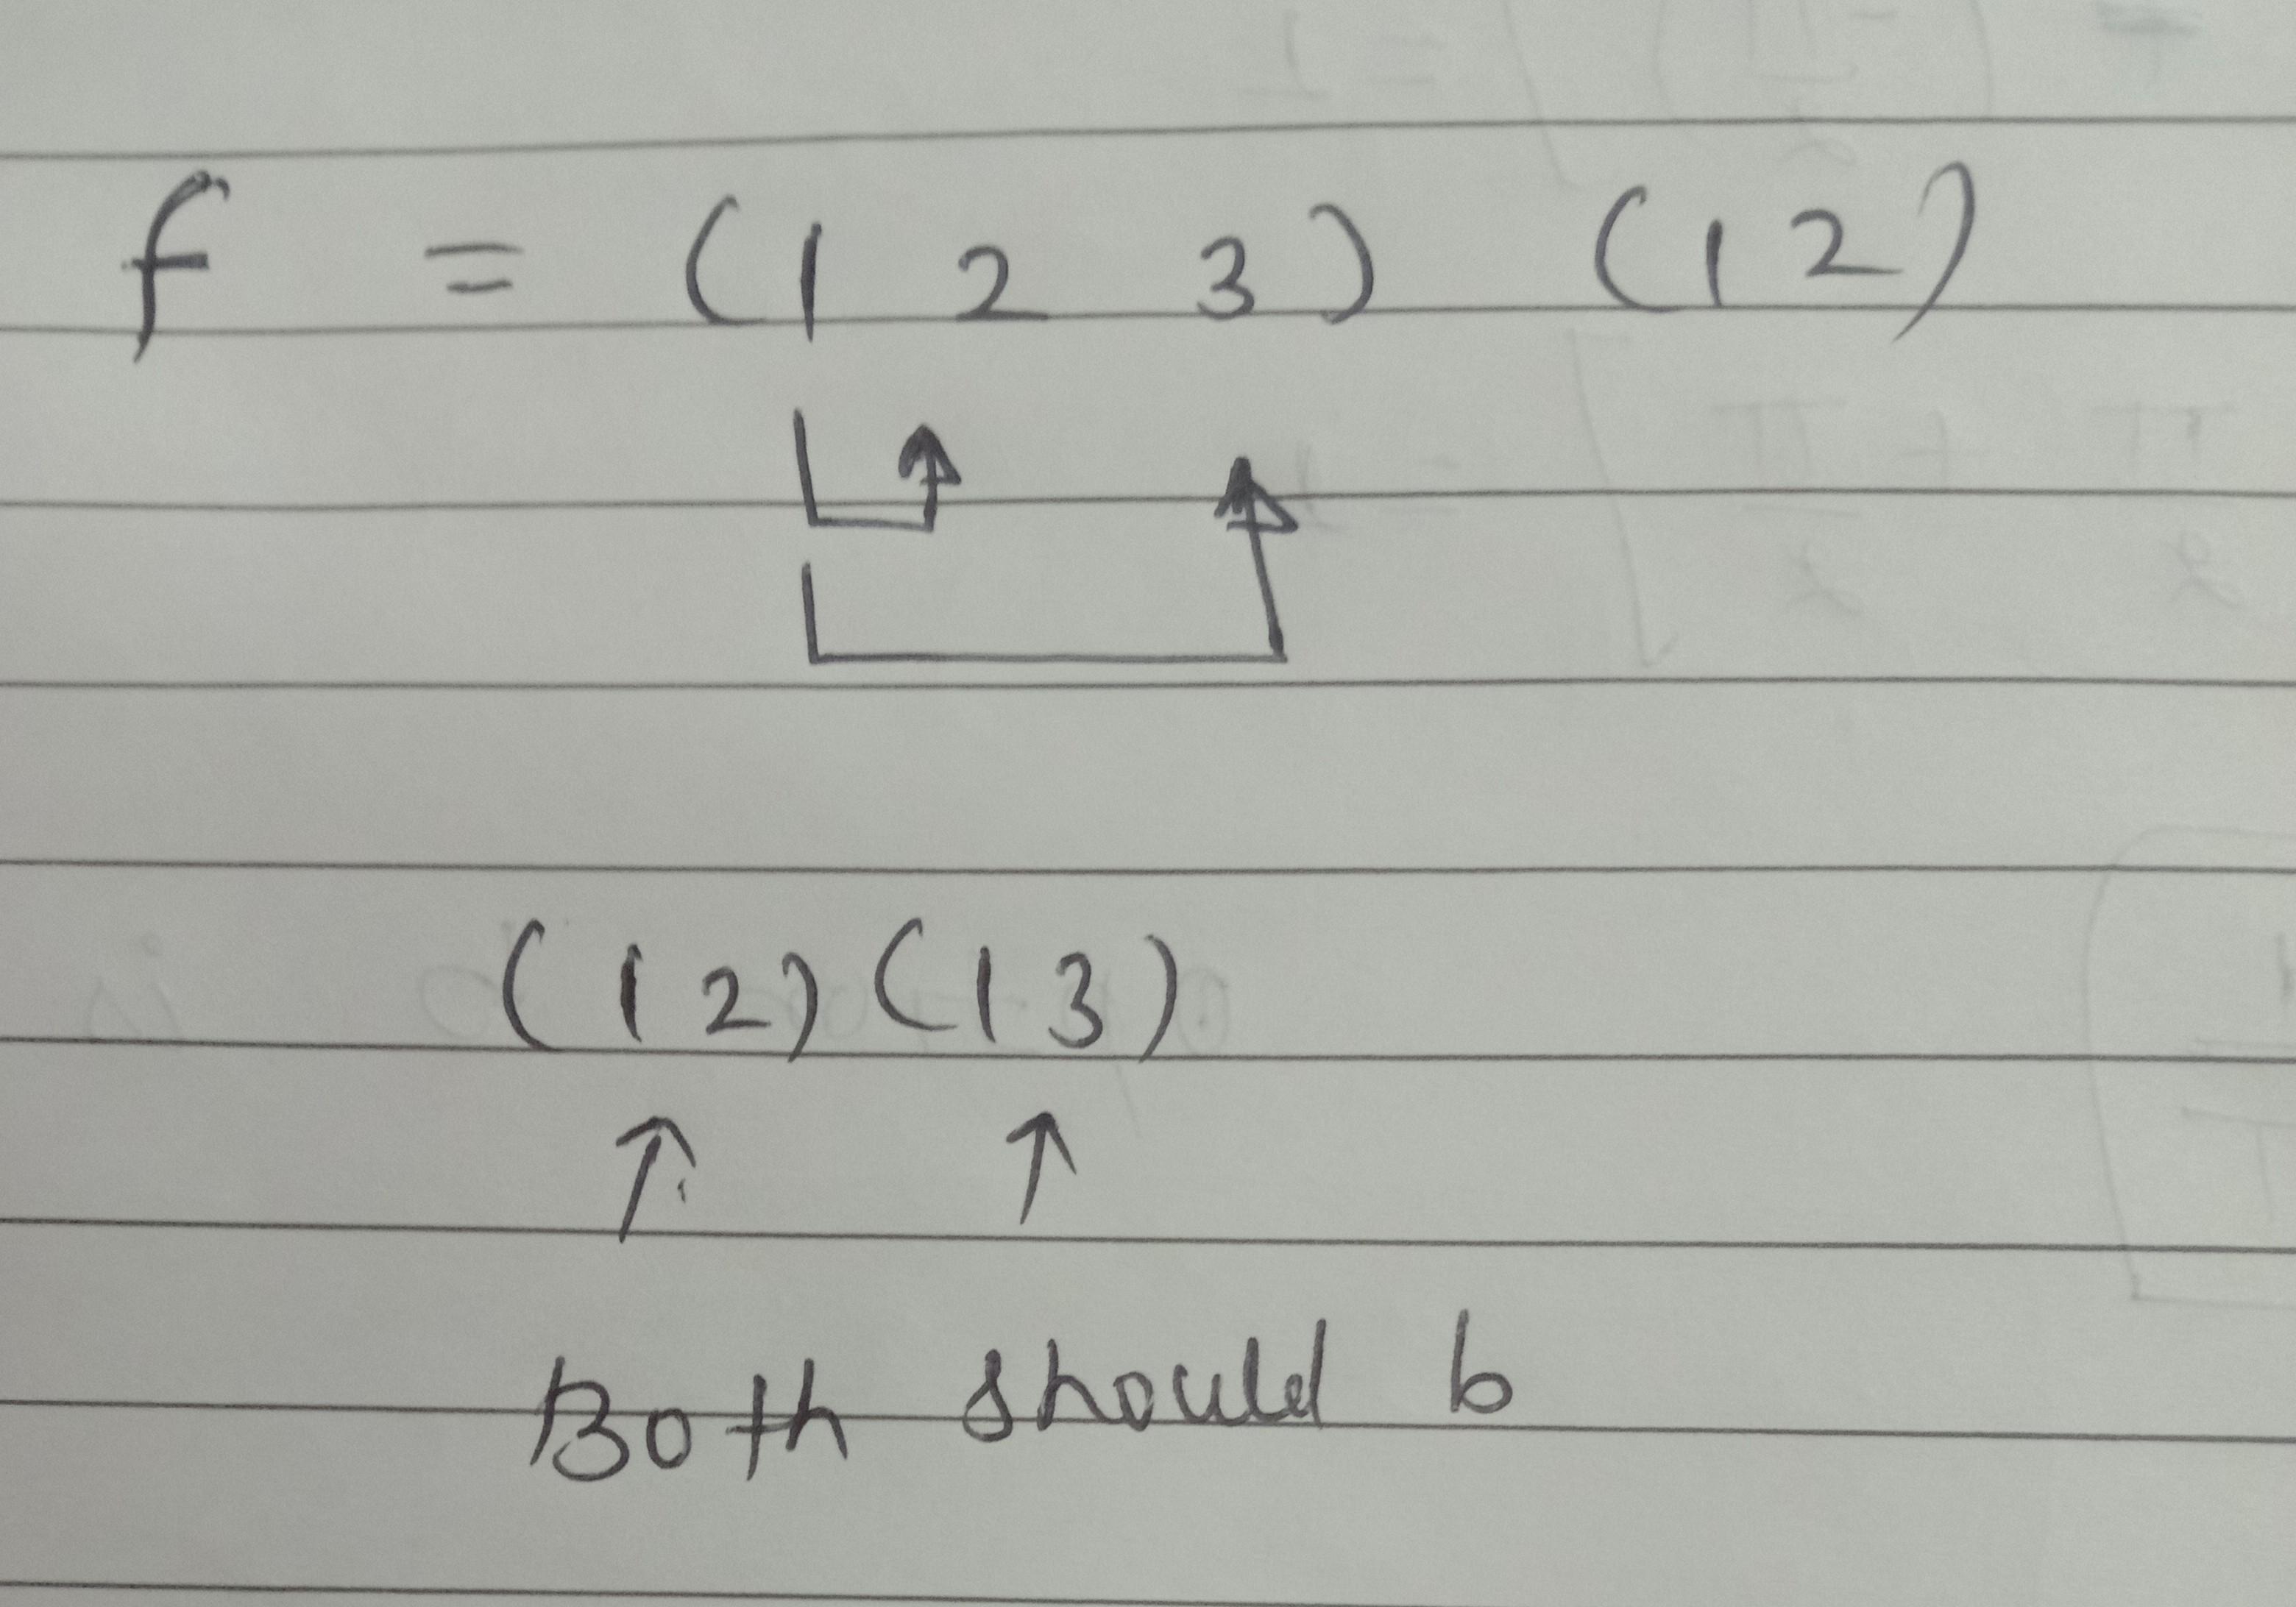 f = (1 2 3) (1 2)
(1 2)(1 3)
Both should b